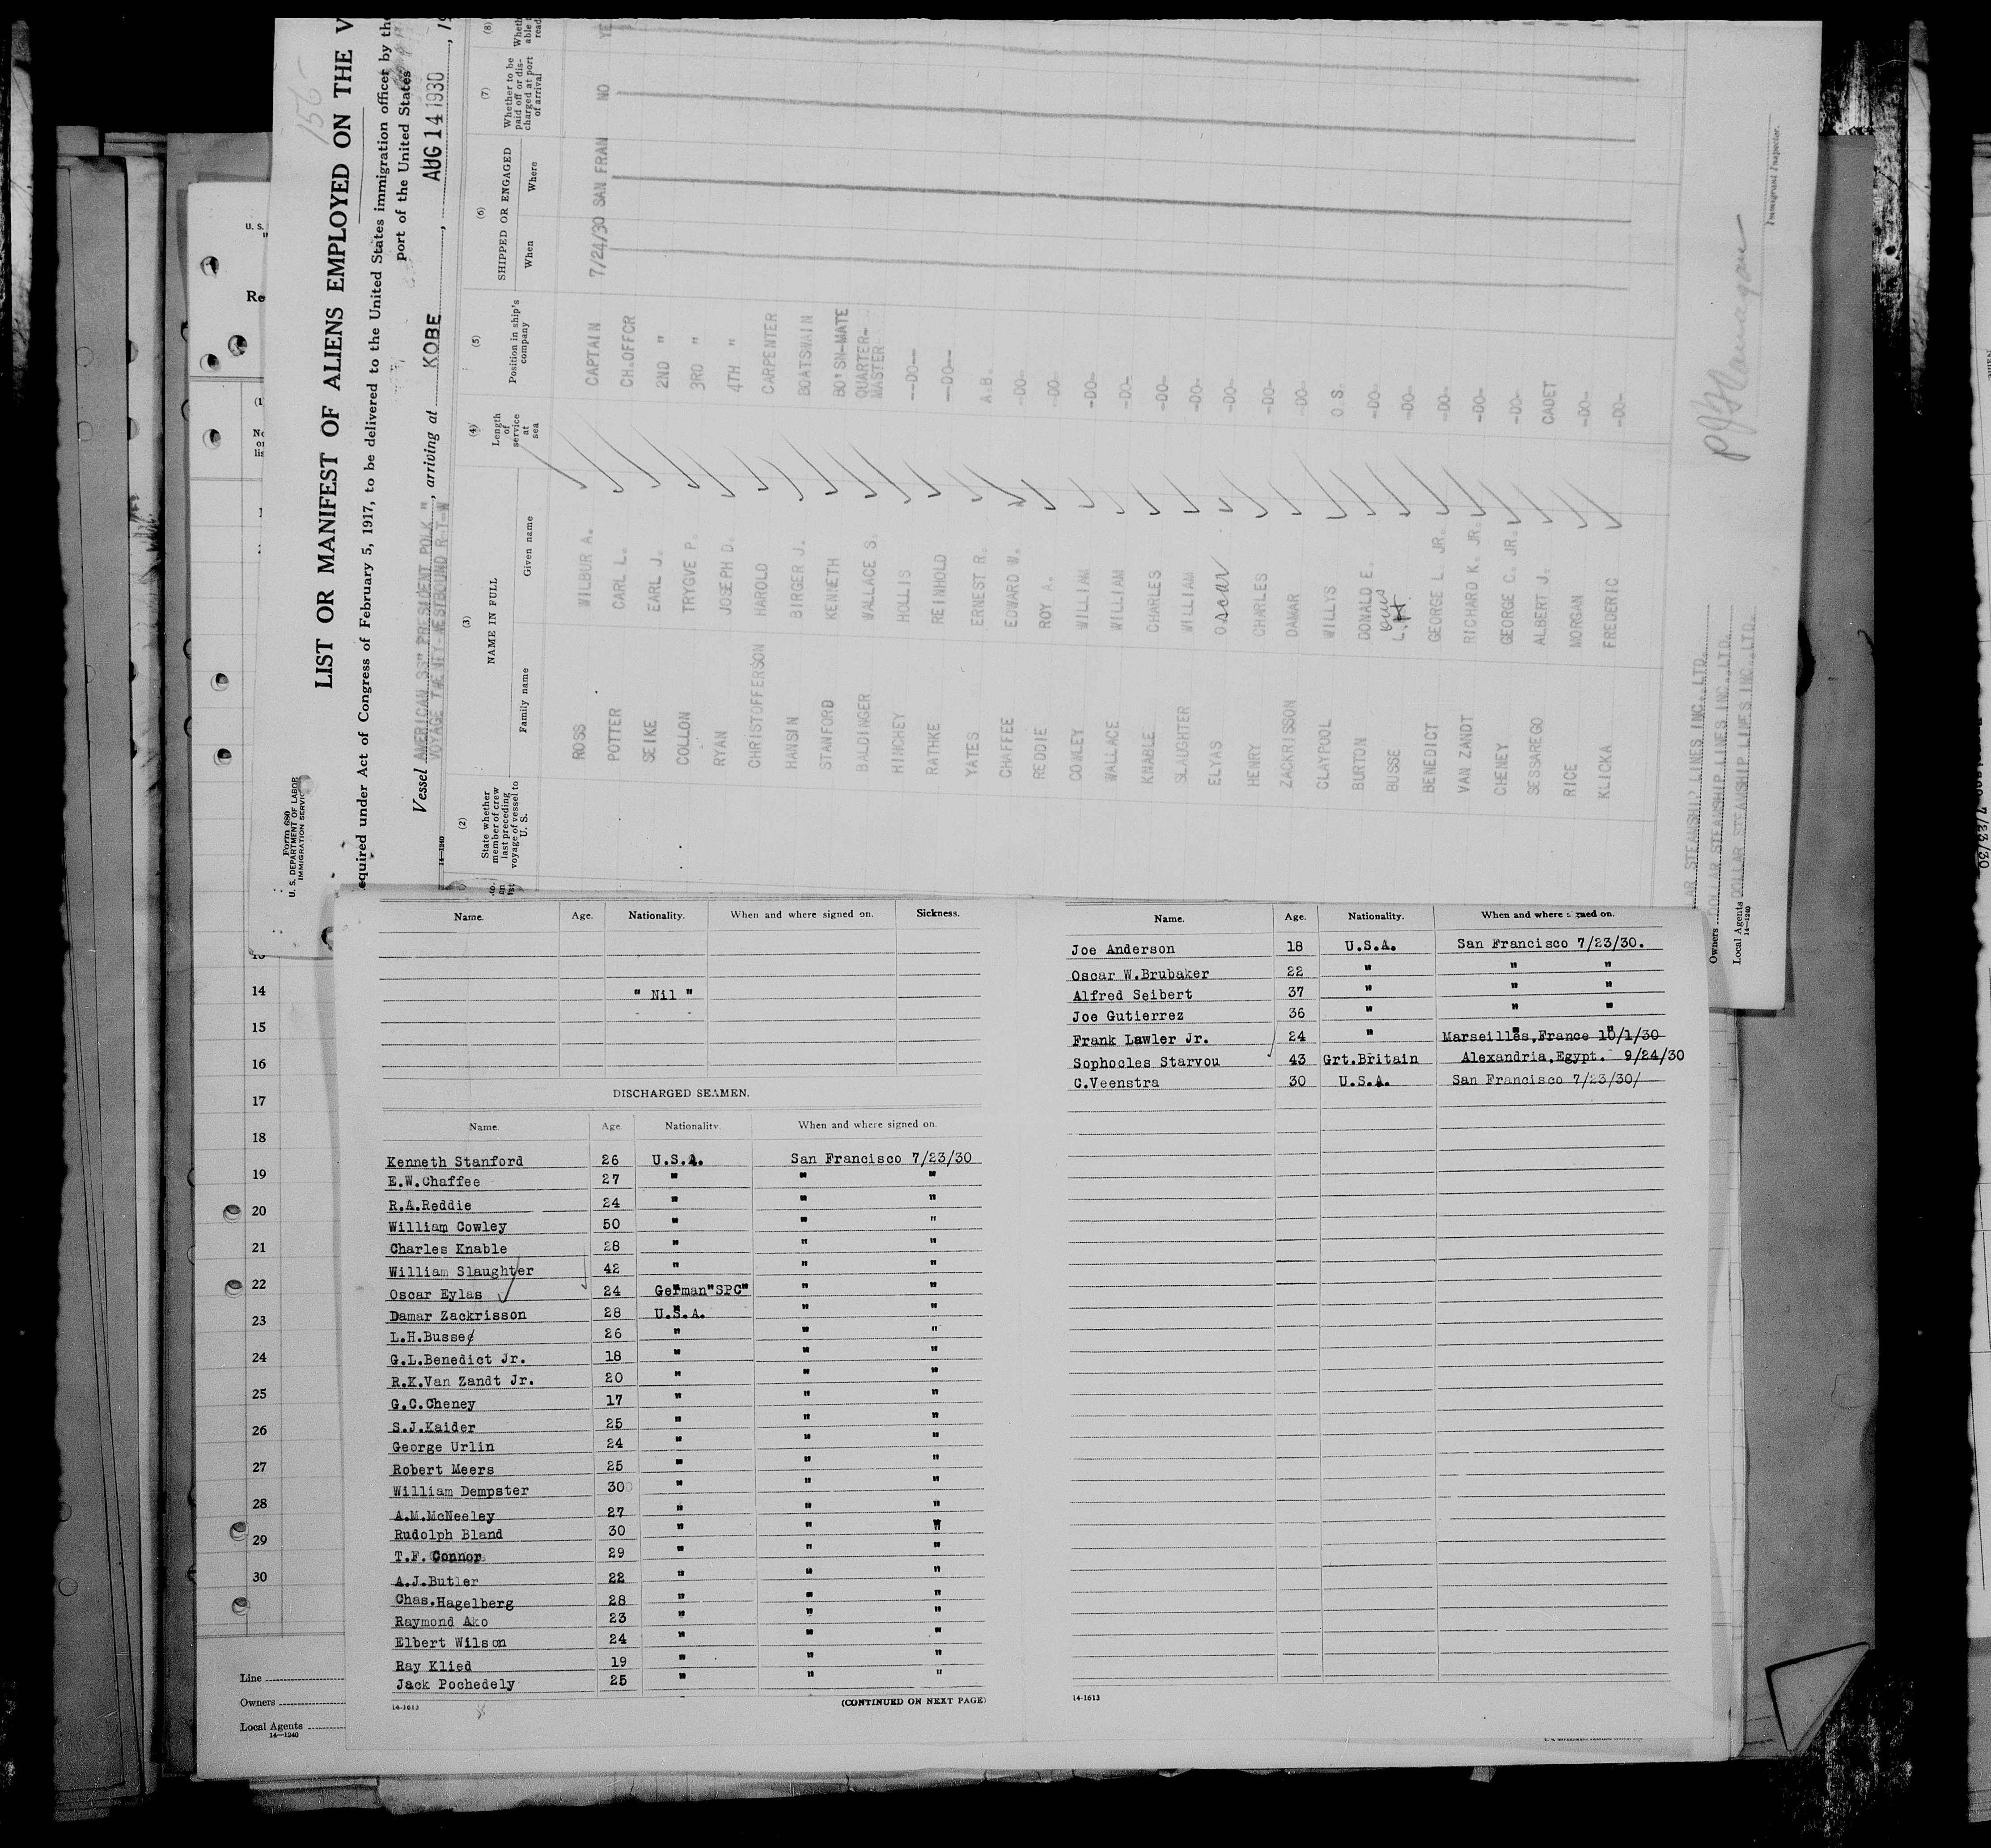 156
Form 680
U. S. DEPARTMENT OF LABOR
IMMIGRATION SERVICE
LIST OR MANIFEST OF ALIENS EMPLOYED ON THE V
equired under Act of Congress of February 5, 1917, to be delivered to the United States immigration officer by the
port of the United States
Vessel AMERICAN SS" PRESIDENT POLK ", arriving at KOBE, AUG 14 1930, 19
VOYAGE TWENTY-WESTBOUND R-T-W
14-1240
(2) (3) (4) (5) (6) (7) (8)
State whether member of crew last preceding voyage of vessel to U. S.
NAME IN FULL
Family name Given name
Length of service at sea
Position in ship's company
SHIPPED OR ENGAGED
When Where
Whether to be paid off or discharged at port of arrival
ROSS WILBUR A. CAPTAIN 7/24/30 SAN FRAN NO YE
POTTER CARL L. CH.OFFCR
SEIKE EARL J. 2ND "
COLLON TRYGVE P. 3RD "
RYAN JOSEPH D. 4TH "
CHRISTOFFERSON HAROLD CARPENTER
HANSIN BIRGER J. BOATSWAIN
STANFORD KENNETH BO'SN-MATE
BALDINGER WALLACE S. QUARTER-MASTER
HINCHEY HOLLIS --DO--
RATHKE REINHOLD --DO--
YATES ERNEST R. A.B.
CHAFFEE EDWARD W. -DO-
REDDIE ROY A. -DO-
COWLEY WILLIAM -DO-
WALLACE WILLIAM -DO-
KNABLE CHARLES -DO-
SLAUGHTER WILLIAM -DO-
ELYAS Oscar -DO-
HENRY CHARLES -DO-
ZACKRISSON DAMAR -DO-
CLAYPOOL WILLYS O S.
BURTON DONALD E. -DO-
BUSSE L.H. -DO-
BENEDICT GEORGE L. JR. -DO-
VAN ZANDT RICHARD K. JR. -DO-
CHENEY GEORGE C. JR. -DO-
SESSAREGO ALBERT J. CADET
RICE MORGAN -DO-
KLICKA FREDERIC -DO-
Immigrant Inspector.
AR STEAMSHIP LINES INC.,LTD.
Owners DOLLAR STEAMSHIP LINES INC.,LTD.
Local Agents DOLLAR STEAMSHIP LINES INC.,LTD.
14-1240
U. S.
Re
14
15
16
17
18
19
20
21
22
23
24
25
26
27
28
29
30
Line
Owners
Local Agents
14-1240
Name. Age. Nationality. When and where signed on. Sickness.
" Nil "
DISCHARGED SEAMEN.
Name. Age. Nationality. When and where signed on.
Kenneth Stanford 26 U.S.A. San Francisco 7/23/30
E.W.Chaffee 27 " " "
R.A.Reddie 24 " " "
William Cowley 50 " " "
Charles Knable 28 " " "
William Slaughter 42 " " "
Oscar Eylas 24 German"SPC" " "
Damar Zackrisson 28 U.S.A. " "
L.H.Busse 26 " " "
G.L.Benedict Jr. 18 " " "
R.K.Van Zandt Jr. 20 " " "
G.C.Cheney 17 " " "
S.J.Kaider 25 " " "
George Urlin 24 " " "
Robert Meers 25 " " "
William Dempster 30 " " "
A.M.McNeeley 27 " " "
Rudolph Bland 30 " " "
T.F. Connor 29 " " "
A.J.Butler 22 " " "
Chas.Hagelberg 28 " " "
Raymond Ako 23 " " "
Elbert Wilson 24 " " "
Ray Klied 19 " " "
Jack Pochedely 25 " " "
14-1613 (CONTINUED ON NEXT PAGE)
Name. Age. Nationality. When and where signed on.
Joe Anderson 18 U.S.A. San Francisco 7/23/30.
Oscar W.Brubaker 22 " " "
Alfred Seibert 37 " " "
Joe Gutierrez 36 " " "
Frank Lawler Jr. 24 " Marseilles,France 10/1/30
Sophocles Starvou 43 Grt.Britain Alexandria,Egypt. 9/24/30
C.Veenstra 30 U.S.A. San Francisco 7/23/30/
14-1613
7/23/30